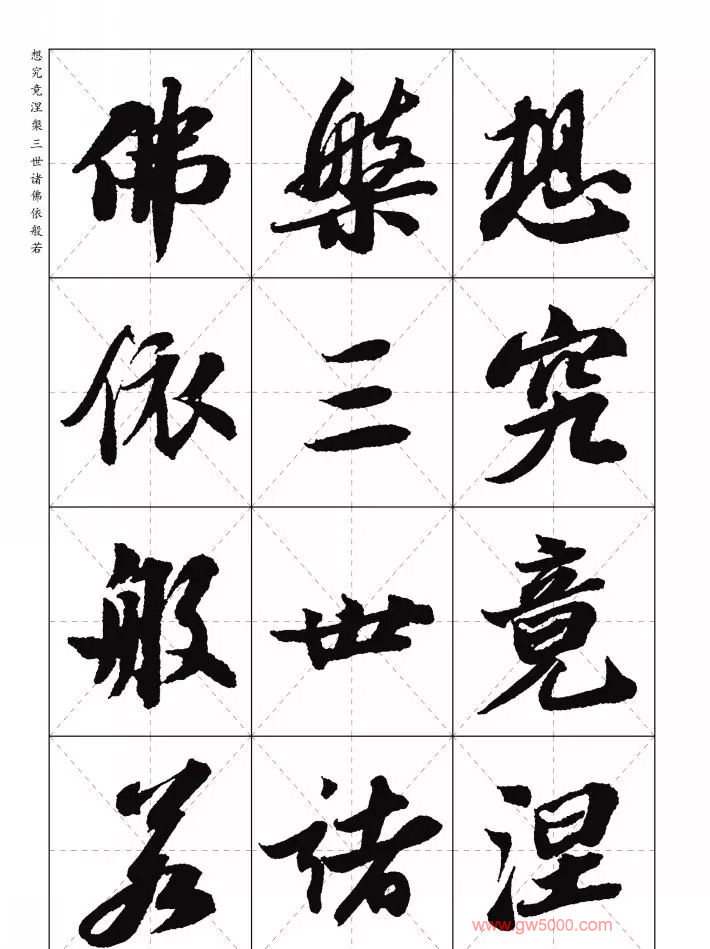 想究竟涅槃三世诸佛依般若
想究竟涅
槃三世诸
佛依般若
www.gw5000.com